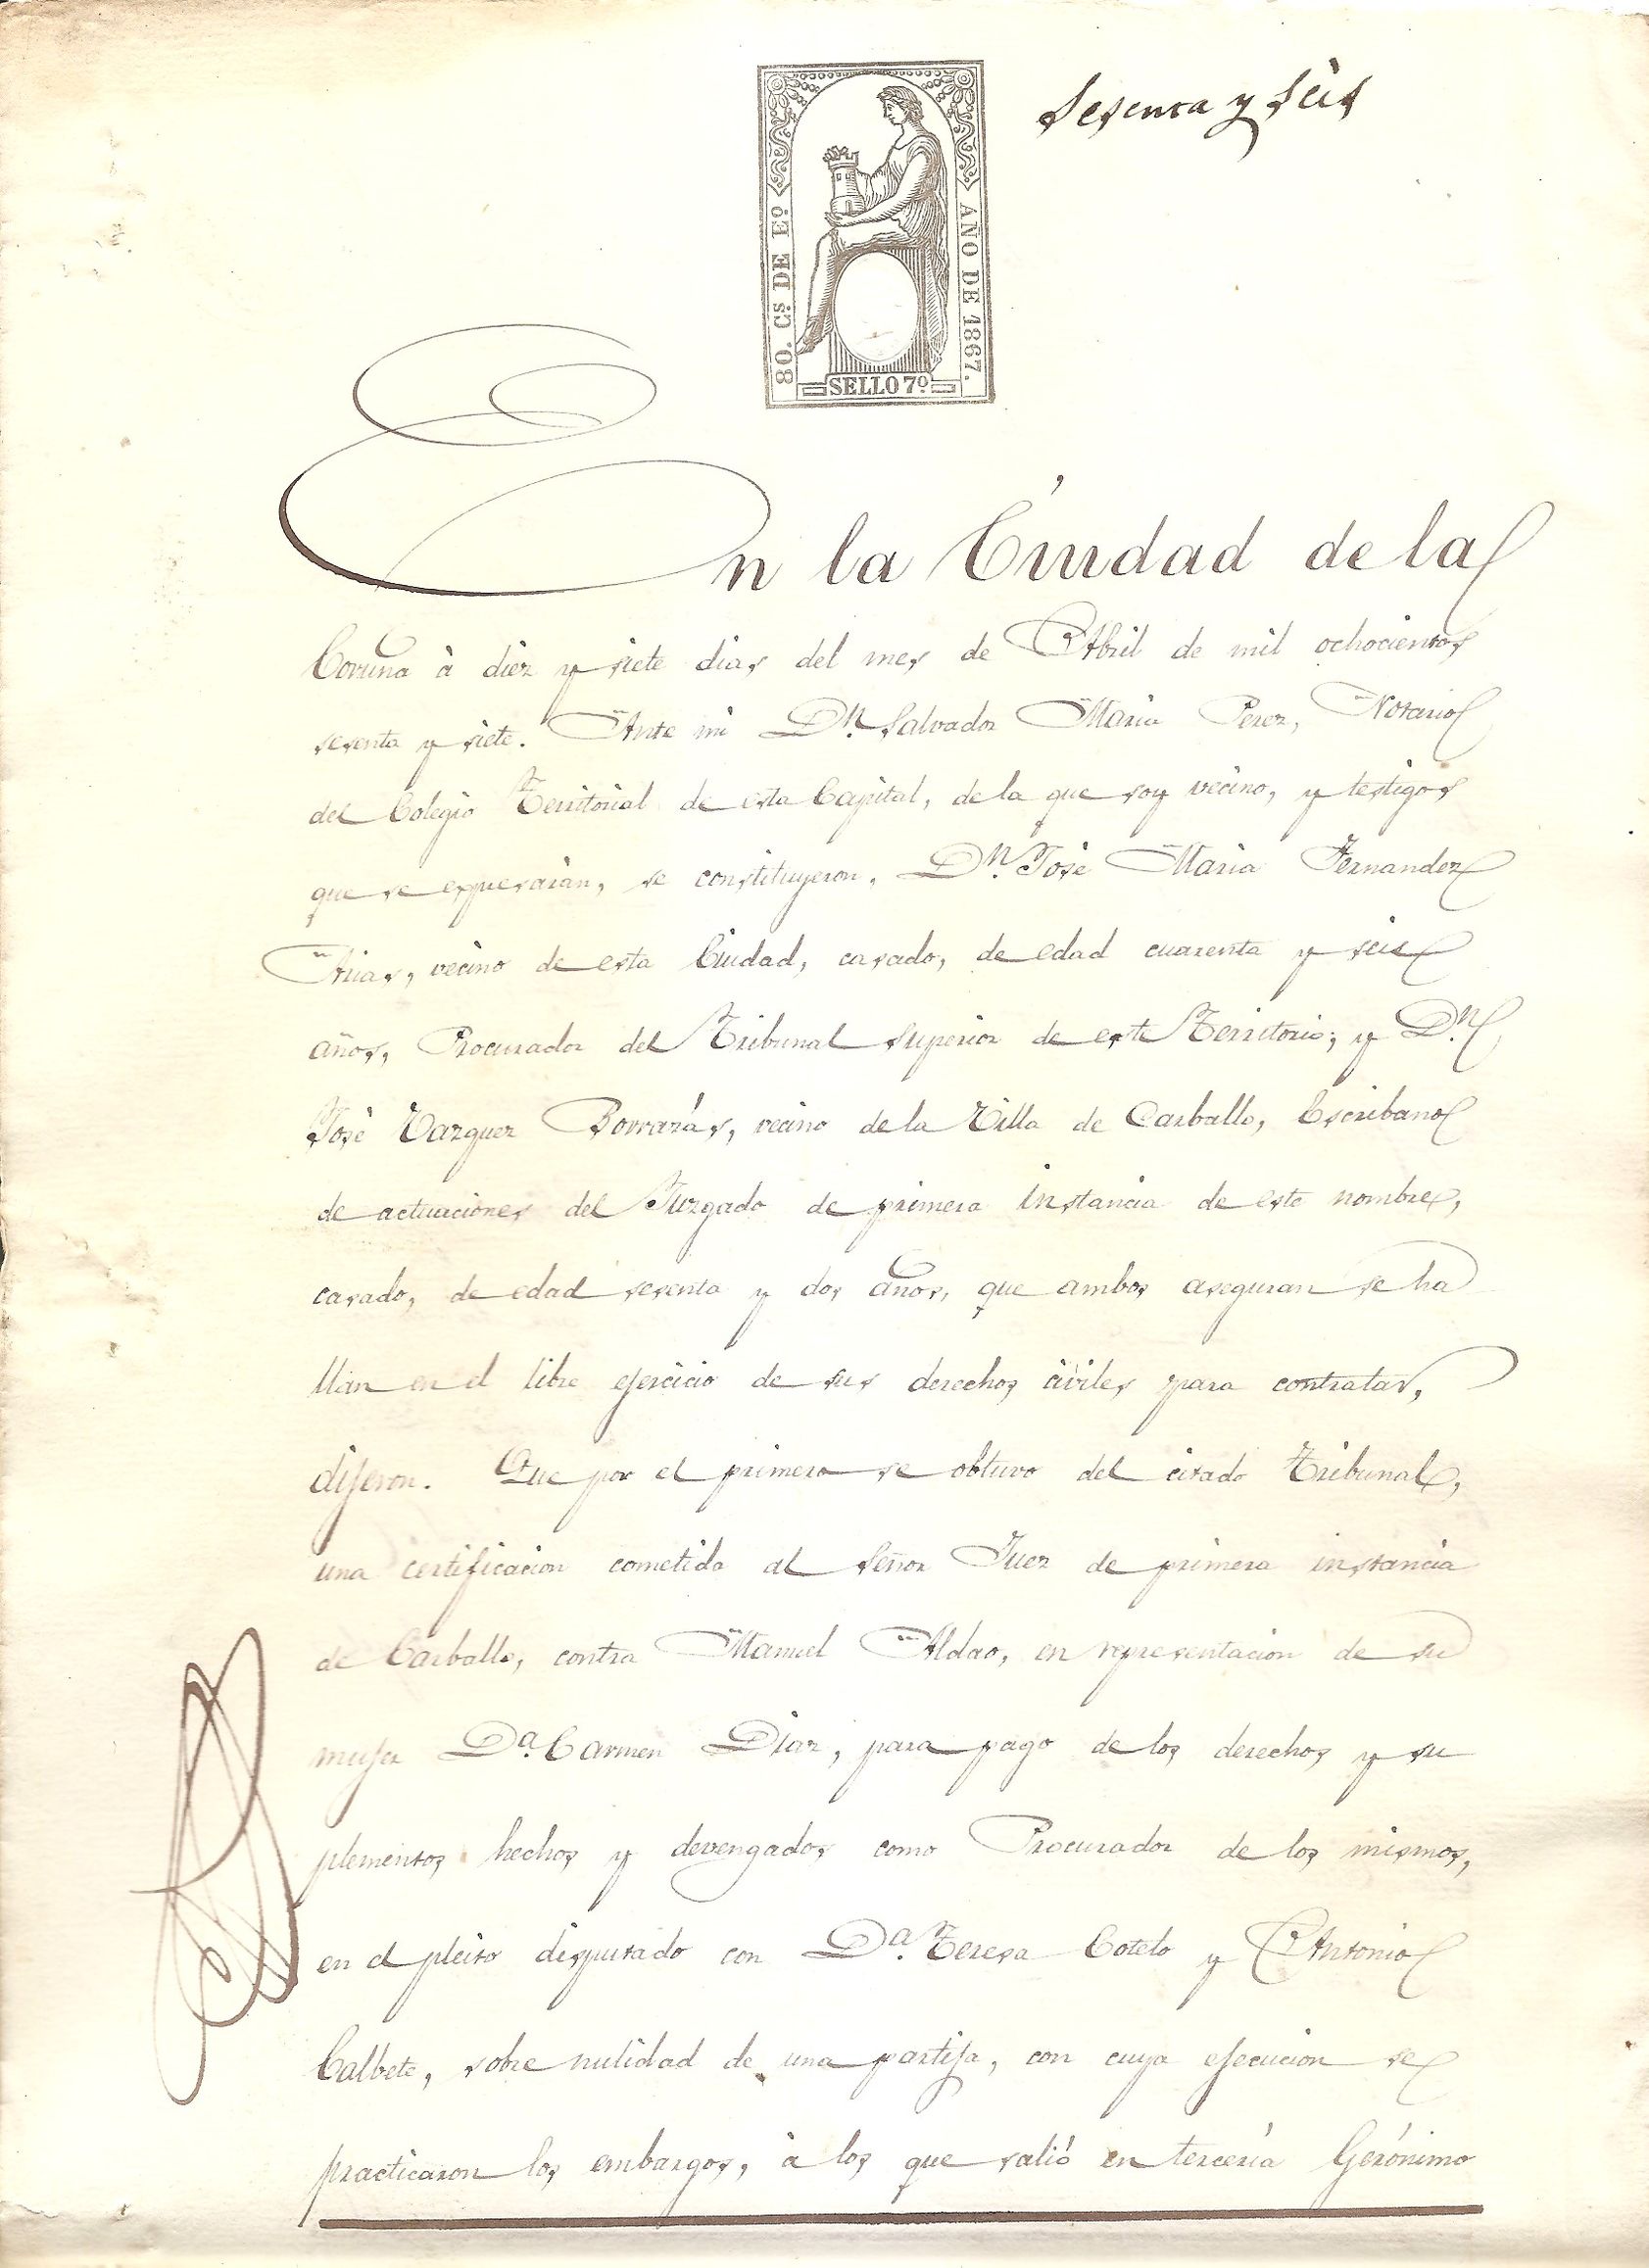 sesenta y seis
80. Cs DE Eo
AÑO DE 1867.
SELLO 7o
En la Ciudad de la
Coruña à diez y siete dias del mes de Abril de mil ochocientos
sesenta y siete. Ante mi Dn. Salvador Maria Perez, Notario
del Colegio Territorial de esta Capital, de la que soy vecino, y testigos
que se espresarán, se constituyeron, Dn. José Maria Fernandez
Arias, vecino de esta Ciudad, casado, de edad cuarenta y seis
años, Procurador del Tribunal Superior de este Territorio; y Dn.
José Vazquez Borrazás, vecino de la Villa de Carballo, Escribano
de actuaciones del Juzgado de primera instancia de este nombre,
casado, de edad sesenta y dos años, que ambos aseguran se ha
llan en el libre ejercicio de sus derechos civiles para contratar,
dijeron. Que por el primero se obtuvo del citado Tribunal,
una certificacion cometida al Señor Juez de primera instancia
de Carballo, contra Manuel Aldao, en representacion de su
mujer Da. Carmen Diaz, para pago de los derechos y su
plementos hechos y devengados como Procurador de los mismos,
en el pleito disputado con Da. Teresa Cotelo y Antonio
Calbete, sobre nulidad de una partija, con cuya ejecucion se
practicaron los embargos, à los que salió en tercería Gerónimo